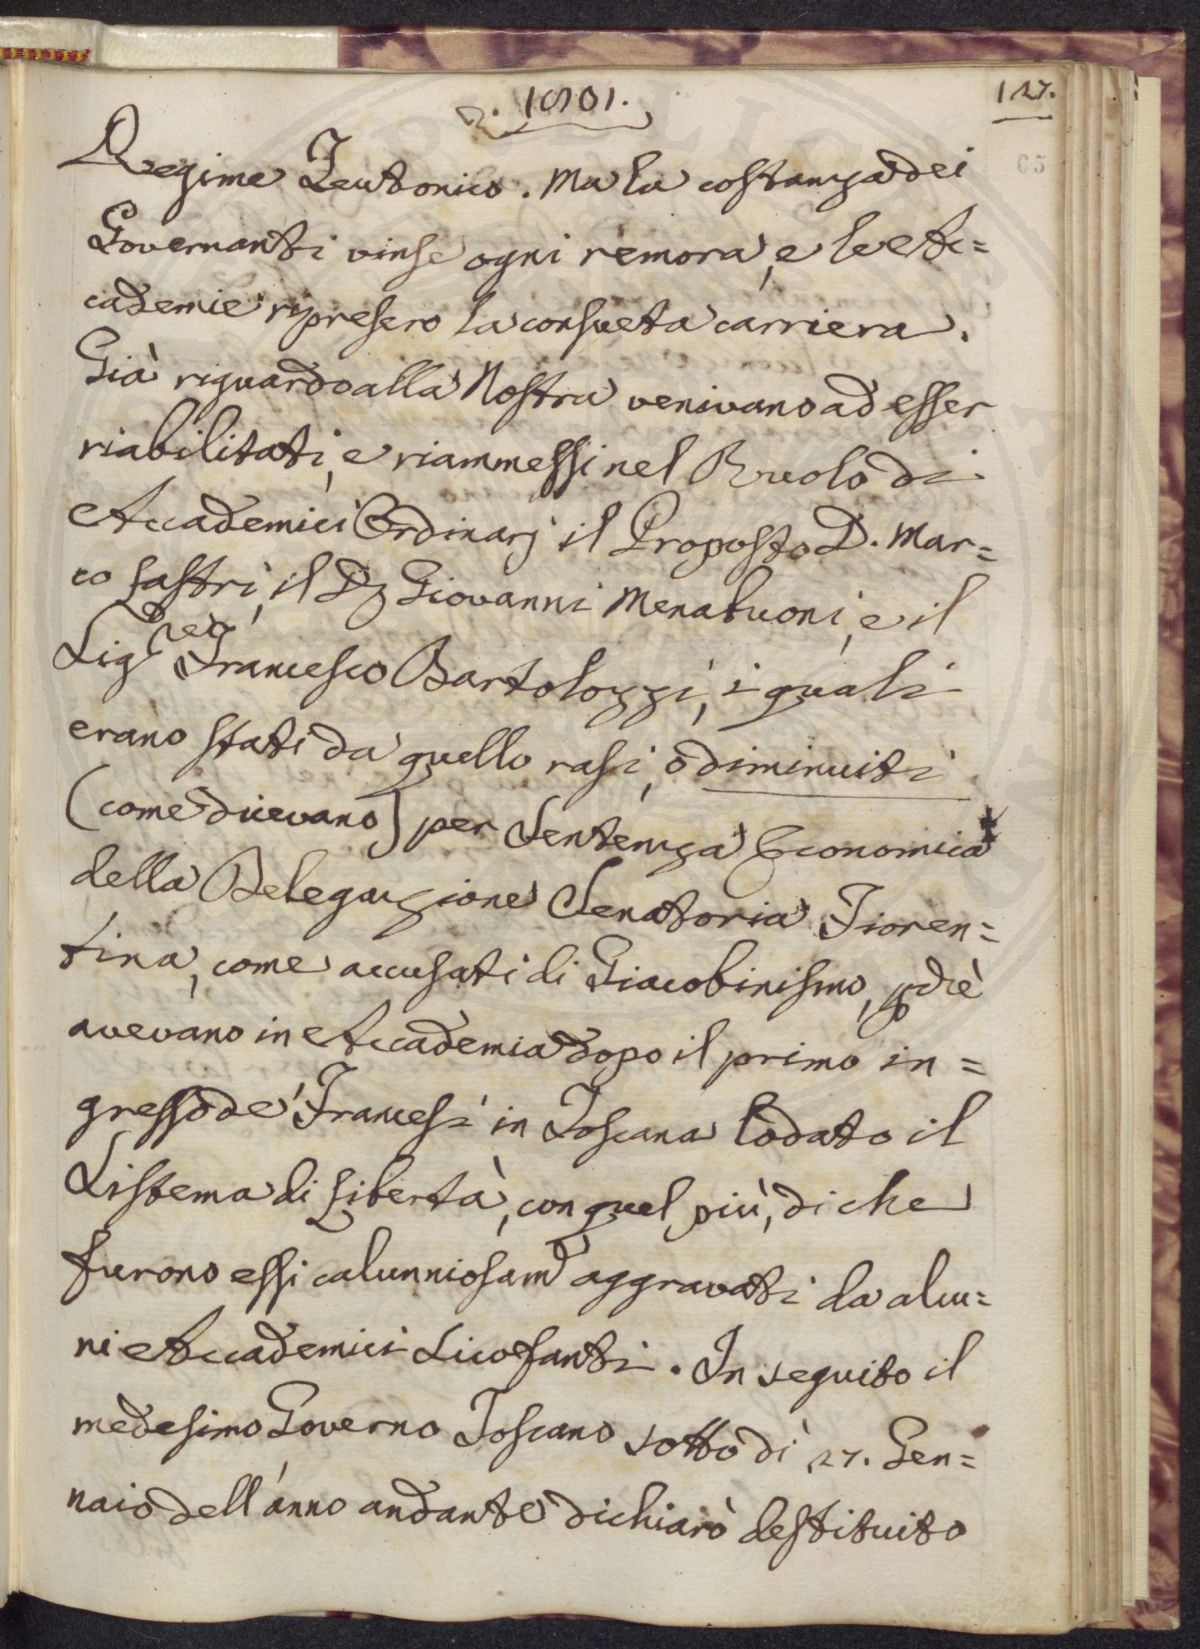 1801.
127.
65
Regime Teutonico. Ma la costanza dei
Governanti vinse ogni remora, e le Ac=
cademie ripresero la consueta carriera.
Già riguardo alla Nostra venivano ad esser
riabilitati, e riammessi nel Ruolo di
Accademici Ordinarj il Proposto D. Mar=
co Lastri, il Dr Giovanni Menabuoni, e il
Sigre Francesco Bartolozzi, i quali
erano stati da quello rasi, o diminuiti
(come dicevano) per Sentenza Economica
della Delegazione Senatoria Fioren=
tina, come accusati di Giacobinismo, pchè
avevano in Accademia dopo il primo in=
gresso de' Francesi in Toscana lodato il
Sistema di Libertà, con quel più, di che
furono essi calunniosamte aggravati da alcu=
ni Accademici Sicofanti. In seguito il
medesimo Governo Toscano sotto dì 27. Gen=
naio dell'anno andante dichiarò destituito